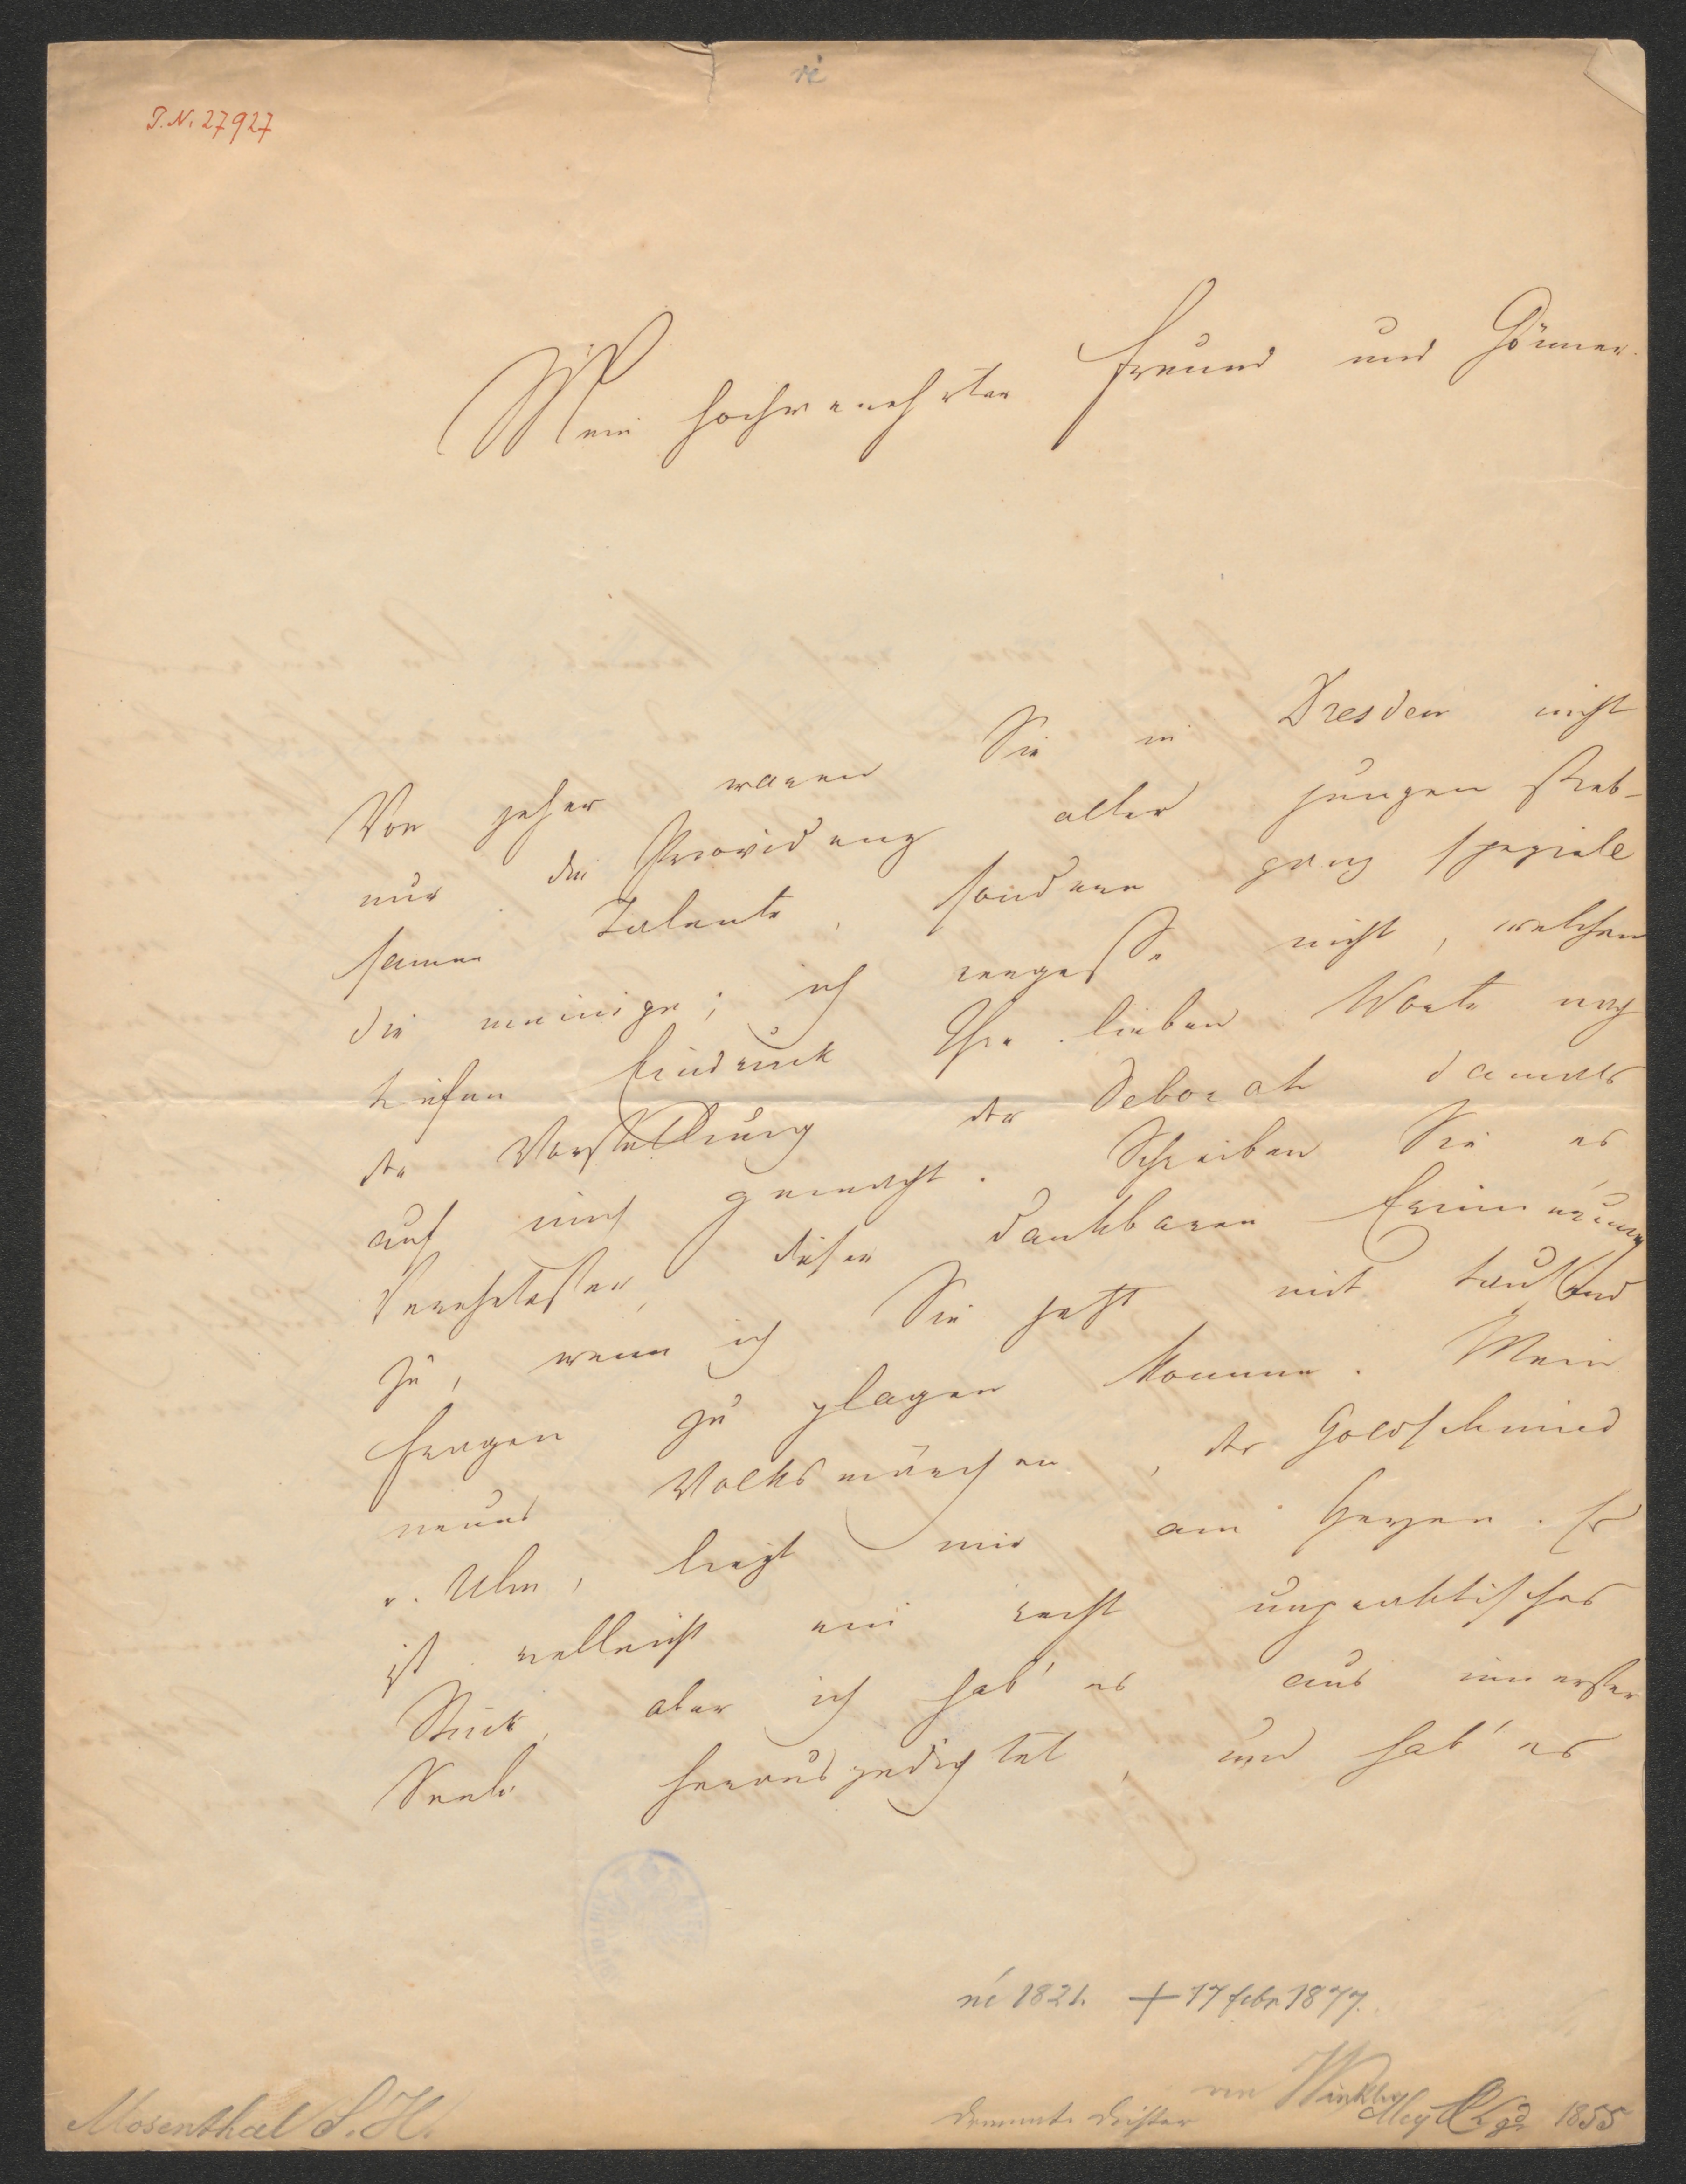 né
I.N. 27927
Mein hochverehrter Freund und Gönner.
Von jeher waren Sie in Dresden nicht
nur die Providenz aller jungen streb-
samen Talente, sondern ganz speziele
die meinige; ich vergesse nicht, welchen
tiefen Eindruck Ihre lieben Worte nach
der Vorstellung der Deborah damals
auf mich gemacht. Schreiben Sie es
Verehrtester, dieser dankbaren Erinnerung
zu, wenn ich Sie jetzt mit tausend
Fragen zu plagen komme. Mein
neues Volksmärchen, der Goldschmied
v. Ulm, liegt mir am Herzen. Es
ist vielleicht ein recht unpraktisches
Stück, aber ich hab' es aus innerster
Seele herausgedichtet, und hab' es
né 1821. + 17 febr. 1877.
Mosenthal S. H.
dramat. Dichter
von Winkler
1855